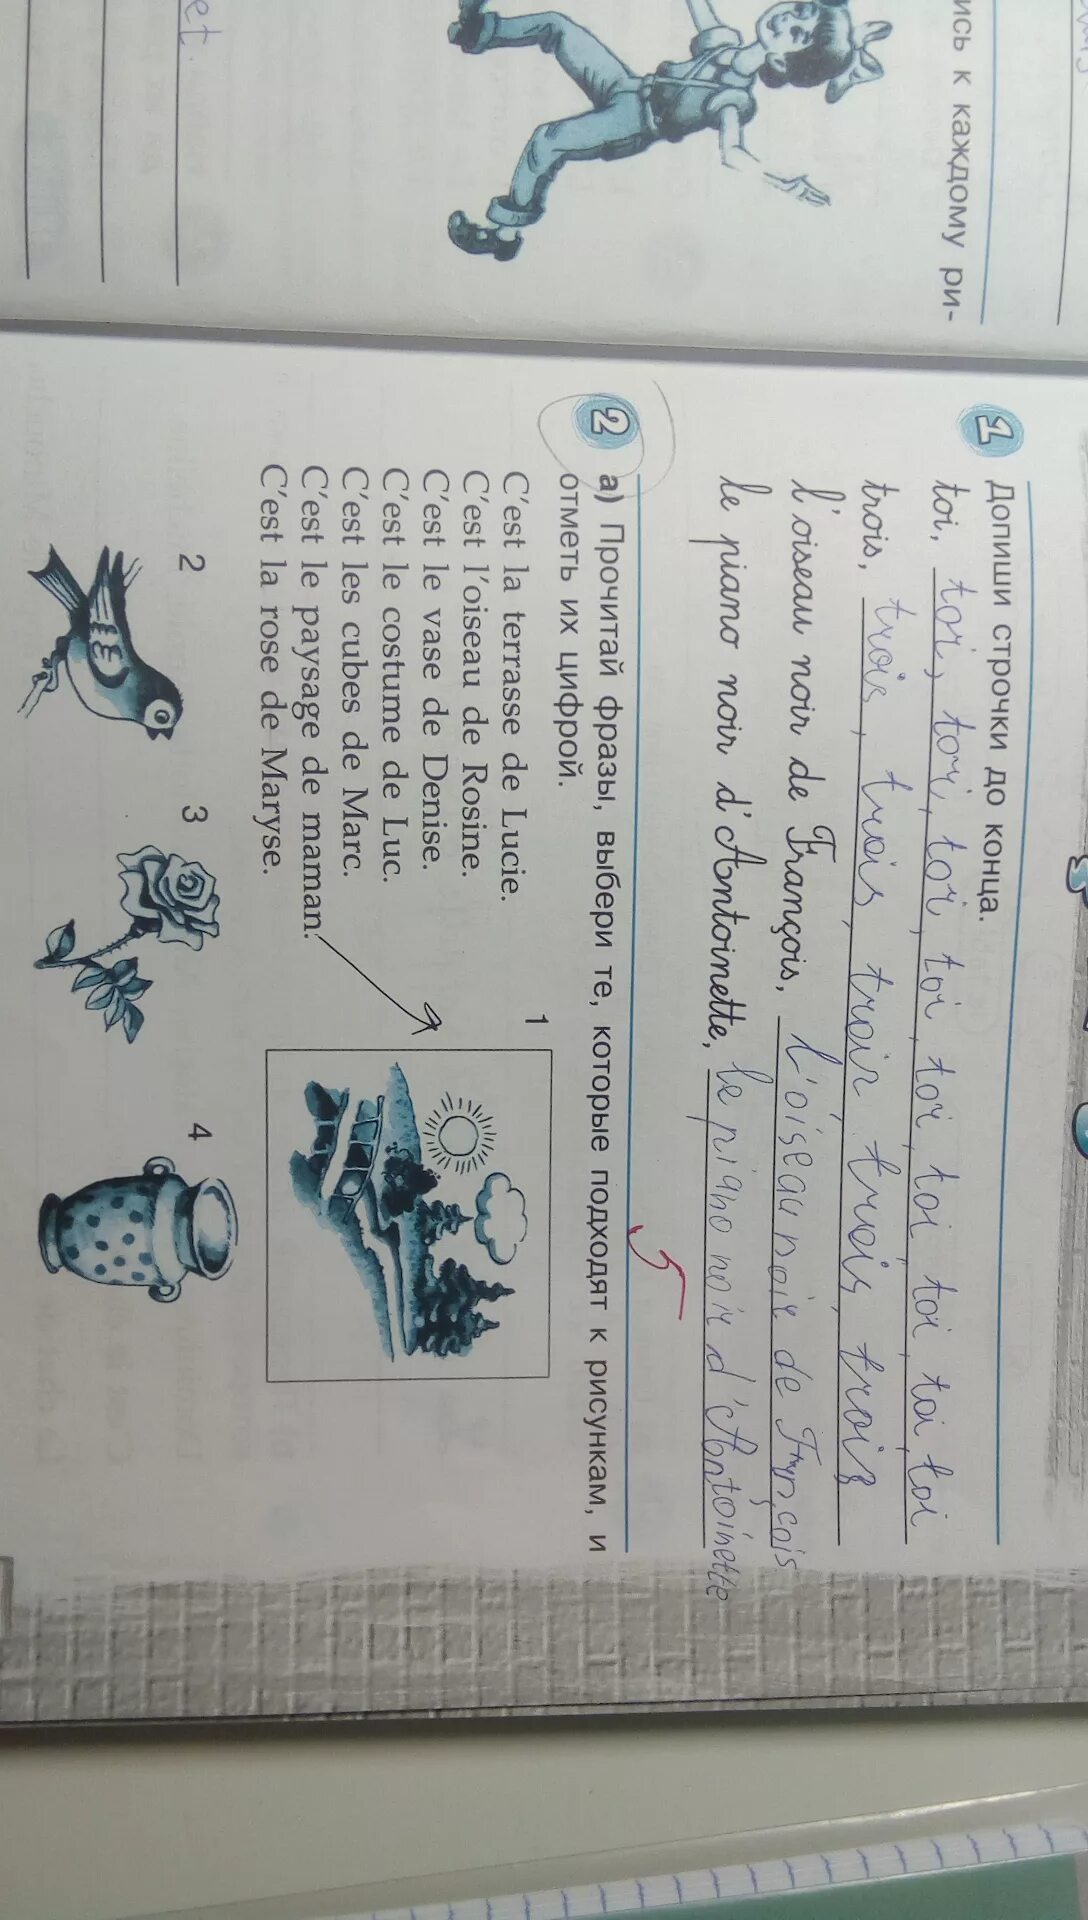 et.
ись к каждому ри-
1 Допиши строчки до конца.
toi, toi, toi, toi, toi, toi, toi, toi, toi, toi
trois, trois, trois, trois, trois, trois
l'oiseau noir de François, l'oiseau noir de François
le piano noir d'Antoinette, le piano noir d'Antoinette
5
2 а) Прочитай фразы, выбери те, которые подходят к рисункам, и
отметь их цифрой.
C'est la terrasse de Lucie.
C'est l'oiseau de Rosine.
C'est le vase de Denise.
C'est le costume de Luc.
C'est les cubes de Marc.
C'est le paysage de maman.
C'est la rose de Maryse.
1
2
3
4